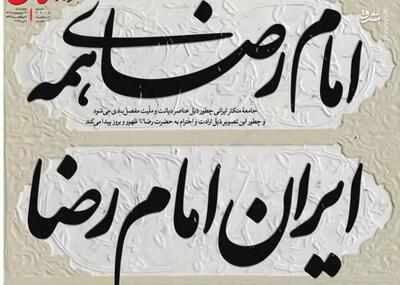 امام رضای همه
جامعهٔ متکثر ایرانی چطور ذیل عناصر دیانت و ملیت مفصل‌بندی می‌شود
و چطور این تصویر ذیل ارادت و احترام به حضرت رضا(ع) ظهور و بروز پیدا می‌کند
ایران امام رضا
مشرق